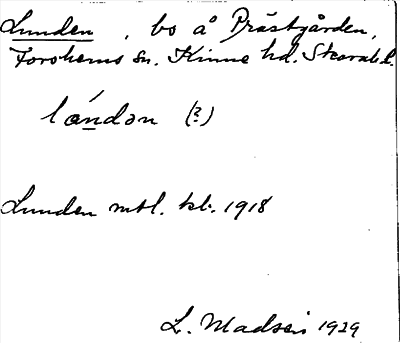 Lunden, bo å Prästgården,
Forshems sn. Kinne hd. Skarab. l.
lándən (?)
Lunden mtl. kb. 1918
L. Madsén 1929